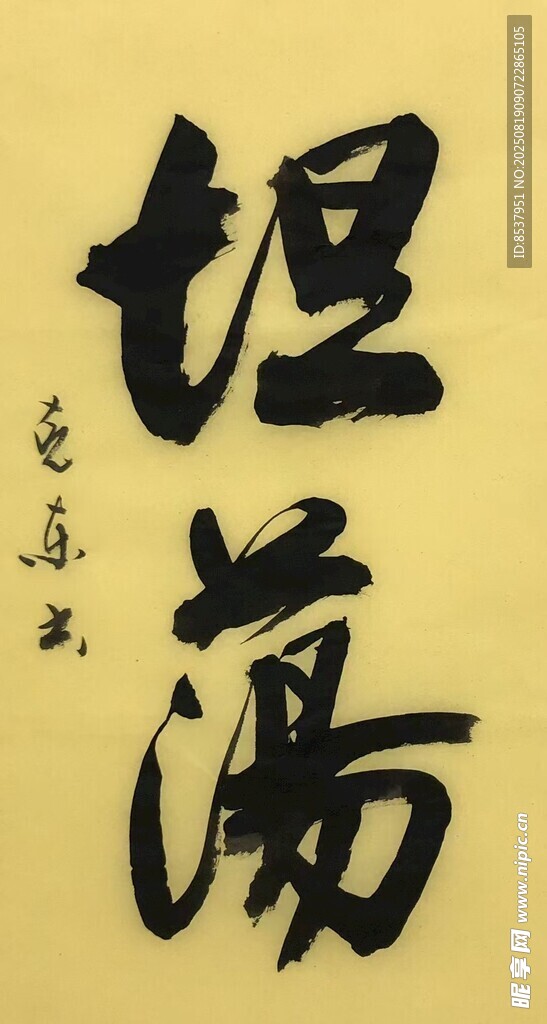 坦蕩
克东书
ID:8537951 NO:20250819090722865105
昵享网 www.nipic.cn